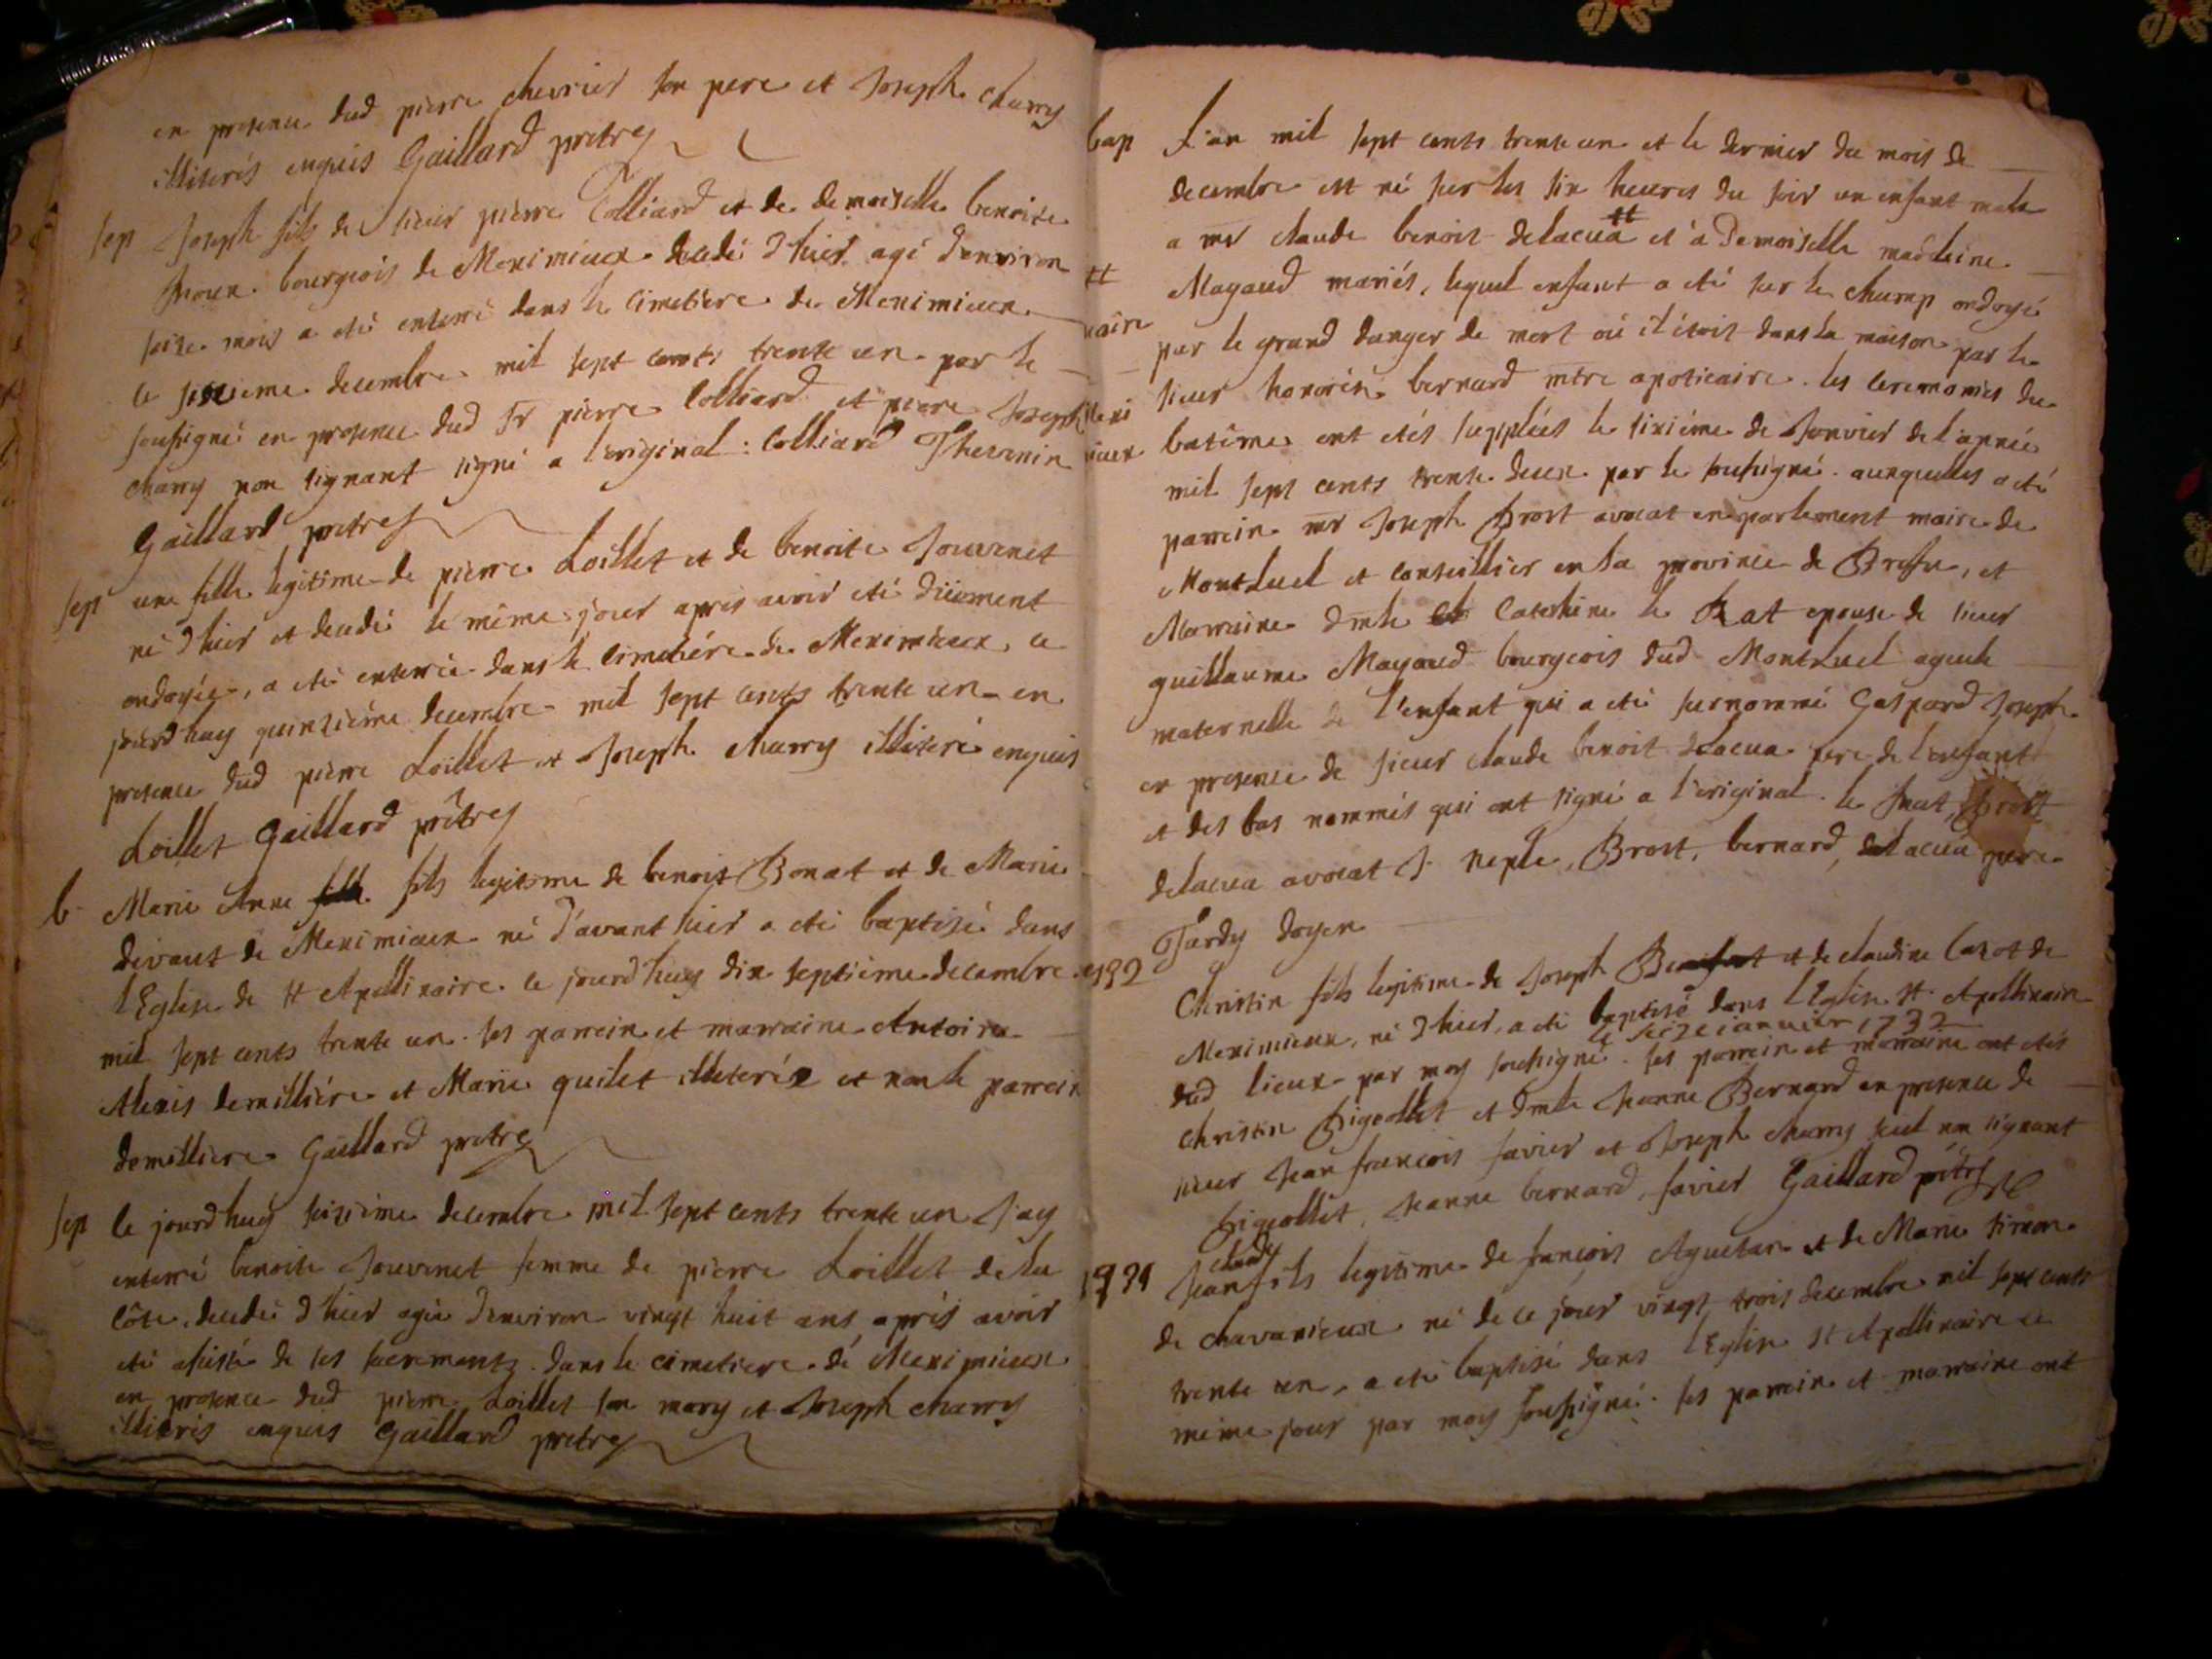 en presence dud pierre chevrier son pere et Joseph charry
illiterés enquis Gaillard pretre
sep Joseph fils de sieur pierre Colliard et de demoiselle benoite
bourgeois de Meximieux decedé d'hier agé d'environ
seize mois a eté enterré dans le cimetiere de Meximieux
ce sixieme decembre mil sept cents trente un par le
sousigné en presence dud Sr pierre Colliard et pierre Joseph
charry non signant signé a l'original : Colliard Thevenin
Gaillard pretre
sep une fille legitime de pierre Loillet et de benoite Jouvenet
né d'hier et decedé le même jour apres avoir eté düement
ondoyée, a eté enterrée dans le cimetiére de Meximieux, ce
jourd'huy quinziéme decembre mil sept cents trente un en
presence dud pierre Loillet et Joseph charry illiteré enquis
Loillet Gaillard prêtre
b Marie Anne fille fils legitime de benoit Bonat et de Marie
devaut de Meximieux né d'avant hier a eté baptisé dans
l'Eglise de St Apollinaire ce jourd'huy dix septieme decembre
mil sept cents trente un. ses parrein et marraine Antoine
Alexis demilliére et Marie quilet illiterée et non le parrein
demilliere Gaillard pretre
sep le jourd'huy seizieme decembre mil sept cents trente un J'ay
enterré benoite Jouvenet femme de pierre Loillet de la
côte, decedée d'hier agée d'environ vingt huit ans, aprés avoir
eté asisté de ses sacrements dans le cimetiere de Meximieux
en presence dud pierre Loillet son mary et Joseph charry
illiterés enquis Gaillard pretre
bap L'an mil sept cents trente un et le dernier du mois de
decembre est né sur les six heures du soir un enfant male
a mr claude benoit delacua tt et a Demoiselle madleine
tt Magaud mariés, lequel enfant a eté sur le champ ondoyé
par le grand danger de mort où il étoit dans la maison par le
sieur honoré bernard mtre apoticaire. les ceremonies du
batême ont etés suppléés le sixiéme de Janvier de l'année
mil sept cents trente deux par le sousigné. auxquelles a eté
parrein mr Joseph Brost avocat en parlement maire de
Montluel et conseillier en la province de Bresse, et
Marraine dmlle Catherine le Rat epouse de sieur
guillaume Magaud bourgeois dud Montluel ayeule
maternelle de l'enfant qui a eté surnommé Gaspard Joseph
en presence de sieur claude benoit delacua pere de l'enfant
et des bas nommés qui ont signé a l'original. le Brost
delacua avocat Brost, bernard, delacua pere
Tardy doyen
Christin fils legitime de Joseph et de claudine Cazot de
Meximieux, né d'hier, a eté baptisé dans l'Eglise St. Apollinaire
le seize ianvier 1732
dud lieux par moy sousigné. ses parrein et marraine ont etés
Christin Bigeollet et dmlle Jeanne Bernard en presence de
sieur Jean françois favier et Joseph charry seul non signant
Bigeollet, Jeanne bernard, favier Gaillard prêtre
claude
1731 Jean fils legitime de françois Aguetan et de Marie simon
de chavanieux né de ce jour vingt trois decembre mil sept cents
trente un, a eté baptisé dans l'Eglise St Apollinaire ce
même jour par moy sousigné. ses parrein et marraine ont